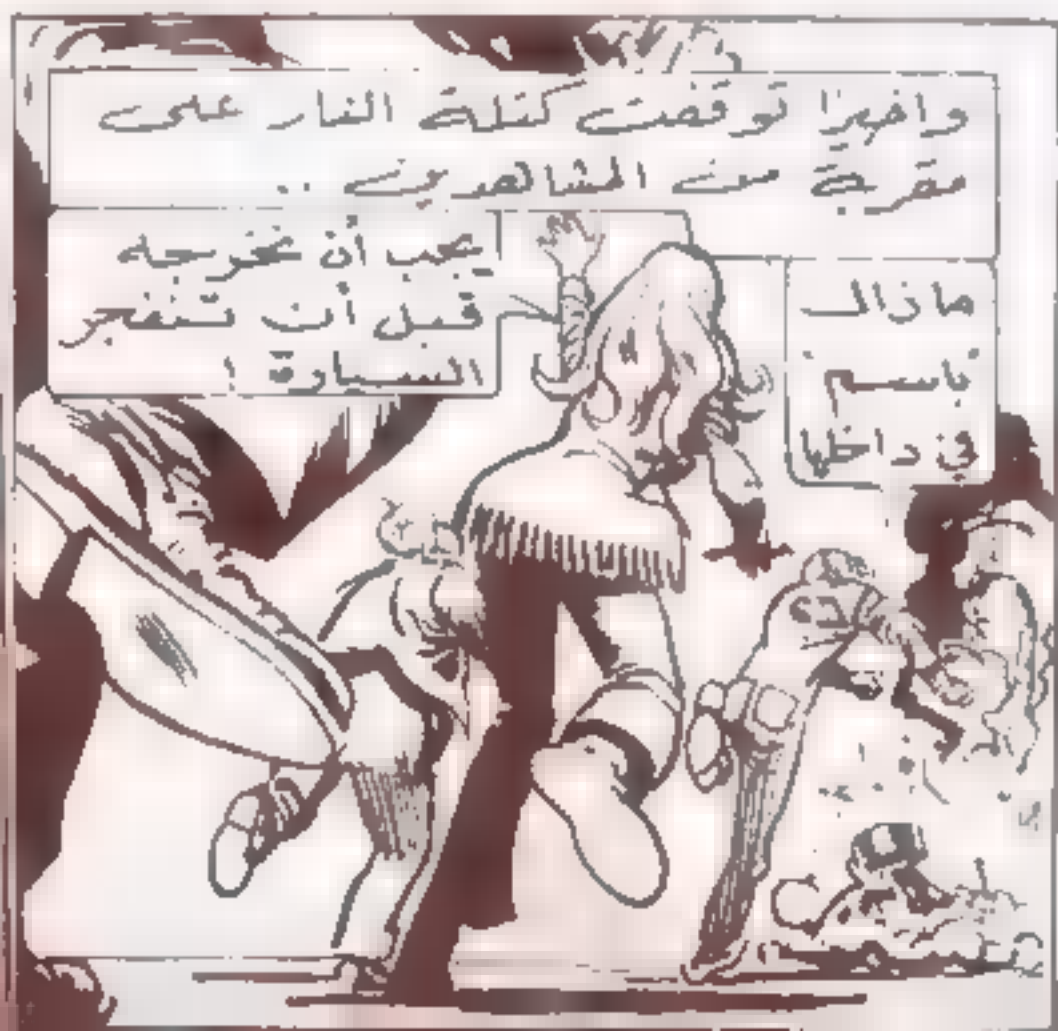 واخيرًا توقفت كتلة النار على
مقربة من المشاهدين ..
مازال
باسم
في داخلها
يجب أن نخرجه
قبل أن تنفجر
السيارة !